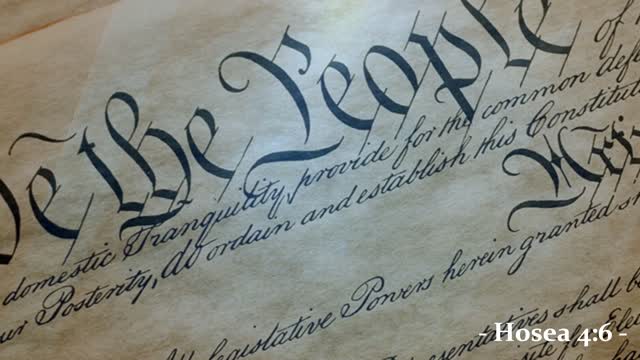 We the People of
domestic Tranquility, provide for the common def
ur Posterity, do ordain and establish this Constitut
Arti
All legislative Powers herein granted sh
resentatives shall be
for Elec
- Hosea 4:6 -